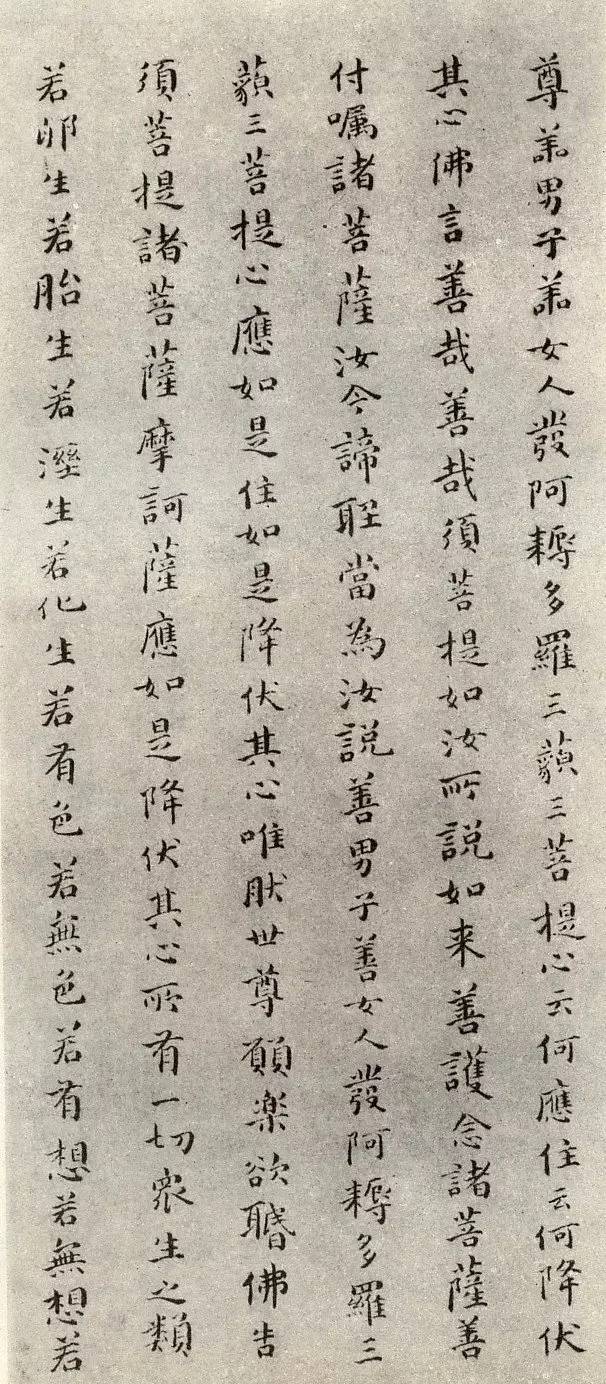 尊善男子善女人發阿耨多羅三藐三菩提心云何應住云何降伏
其心佛言善哉善哉須菩提如汝所説如来善護念諸菩薩善
付囑諸菩薩汝今諦聽當為汝説善男子善女人發阿耨多羅三
藐三菩提心應如是住如是降伏其心唯然世尊願楽欲聞佛告
須菩提諸菩薩摩訶薩應如是降伏其心所有一切衆生之類
若卵生若胎生若溼生若化生若有色若無色若有想若無想若